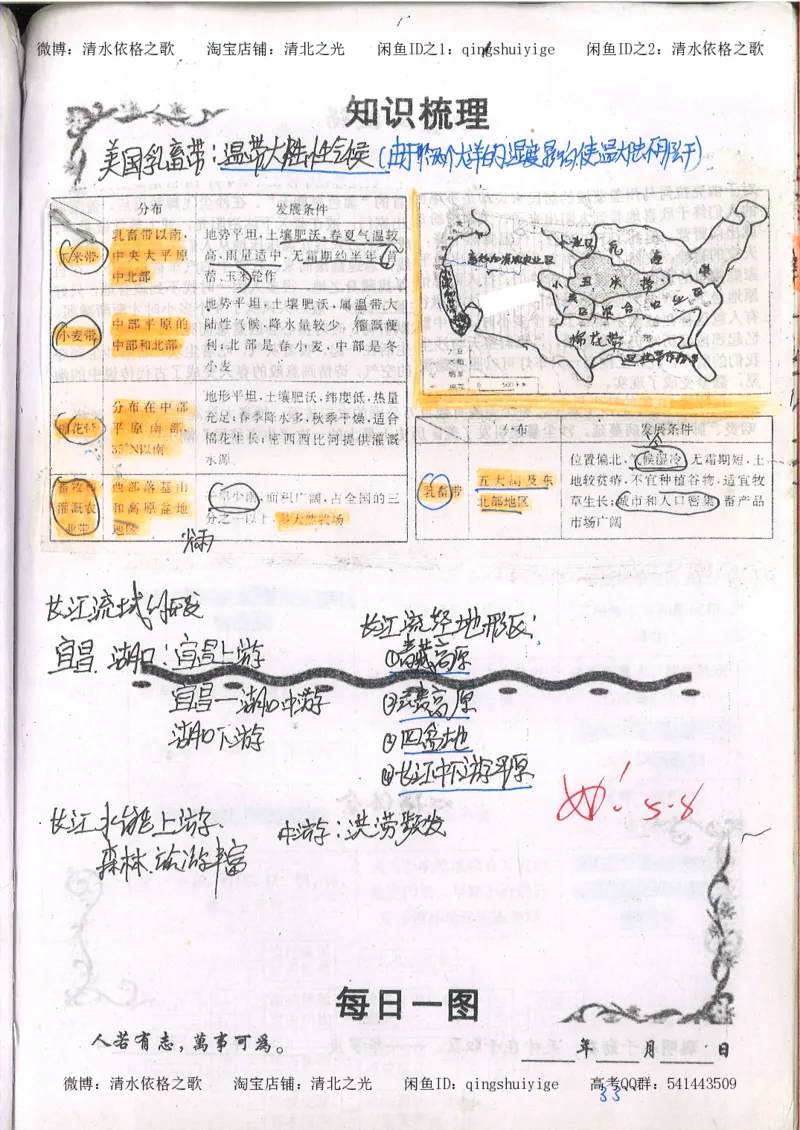 微博：清水依格之歌 淘宝店铺：清北之光 闲鱼ID之1：qingshuiyige 闲鱼ID之2：清水依格之歌
知识梳理
美国乳畜带：温带大陆性气候
分布 发展条件
玉米带
乳畜带以南，
中央大平原
中北部
地势平坦，土壤肥沃，春夏气温较
高，雨量适中，无霜期约半年，苜
蓿、玉米轮作
小麦带
中部平原的
中部和北部
地势平坦，土壤肥沃，属温带大
陆性气候，降水量较少，灌溉便
利；北部是春小麦，中部是冬
小麦
棉花带
分布在中部
平原南部，
35°N以南
地形平坦，土壤肥沃，纬度低，热量
充足；春季降水多，秋季干燥，适合
棉花生长；密西西比河提供灌溉
水源
畜牧和
灌溉农
业带
西部落基山
和高原盆地
地区
干旱少雨，面积广阔，占全国的三
分之一以上，多天然牧场
小麦区
玉米带
棉花带
分布 发展条件
乳畜带
五大湖及东
北部地区
位置偏北，气候湿冷，无霜期短，土
地较贫瘠，不宜种植谷物，适宜牧
草生长；城市和人口密集，畜产品
市场广阔
长江流域
宜昌、湖口：宜昌上游
宜昌—湖口中游
湖口下游
长江流经地形区：
①青藏高原
②云贵高原
③四川盆地
④长江中下游平原
长江水能上游、
森林、旅游丰富
中游：洪涝频发
5.8
每日一图
人若有志，萬事可為。
年 月 日
微博：清水依格之歌 淘宝店铺：清北之光 闲鱼ID：qingshuiyige 高考QQ群：541443509
33